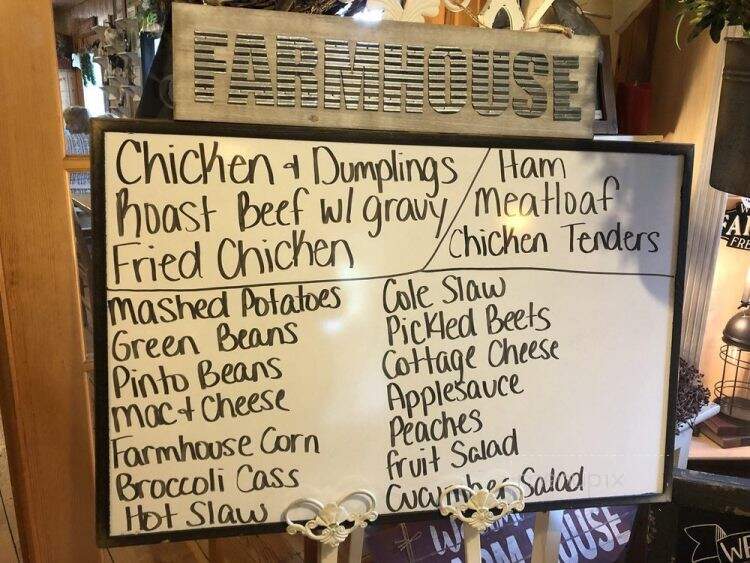 FARMHOUSE
Chicken & Dumplings
Roast Beef w/ gravy
Fried Chicken
Ham
Meatloaf
Chicken Tenders
Mashed Potatoes
Green Beans
Pinto Beans
Mac & Cheese
Farmhouse Corn
Broccoli Cass
Hot Slaw
Cole Slaw
Pickled Beets
Cottage Cheese
Applesauce
Peaches
fruit Salad
Cucumber Salad